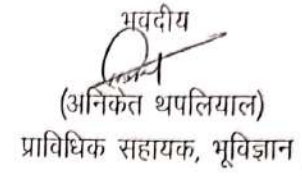 भवदीय
(अनिकेत थपलियाल)
प्राविधिक सहायक, भूविज्ञान